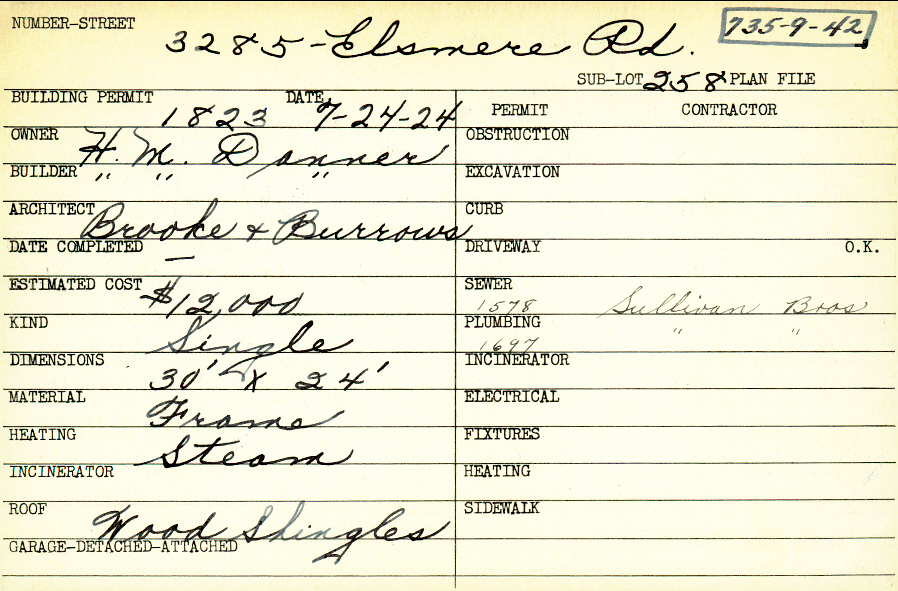 NUMBER-STREET 3285-Elsmere Rd. 735-9-42
SUB-LOT 258 PLAN FILE
BUILDING PERMIT 1823 DATE 7-24-24
PERMIT CONTRACTOR
OWNER H. M. Danner
OBSTRUCTION
BUILDER " " "
EXCAVATION
ARCHITECT Brooke & Burrows
CURB
DATE COMPLETED —
DRIVEWAY O.K.
ESTIMATED COST $12,000
SEWER 1578 Sullivan Bros
KIND Single
PLUMBING 1697 " "
DIMENSIONS 30' x 24'
INCINERATOR
MATERIAL Frame
ELECTRICAL
HEATING Steam
FIXTURES
INCINERATOR
HEATING
ROOF Wood Shingles
SIDEWALK
GARAGE-DETACHED-ATTACHED